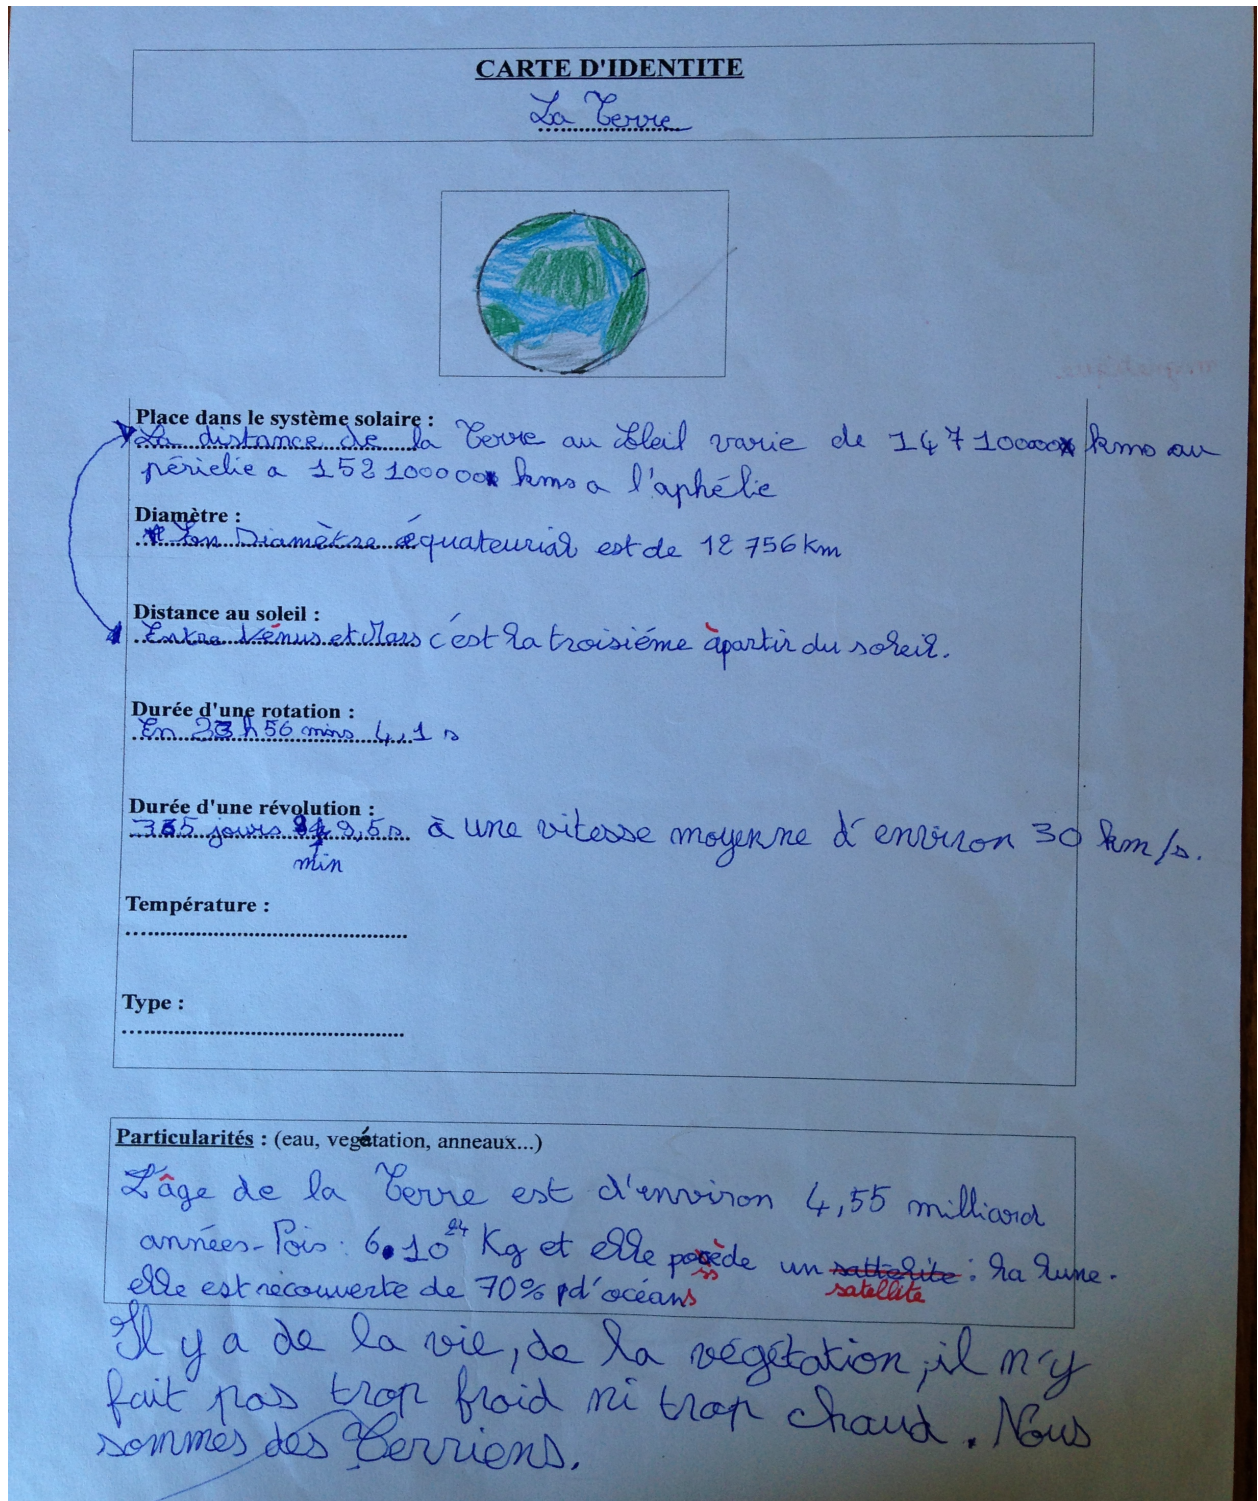 CARTE D'IDENTITE
La Terre
Place dans le système solaire :
La distance de la Terre au Soleil varie de 147 100000 kms au
périelie a 152 100000 kms a l'aphélie
Diamètre :
Son Diamètre équateurial est de 12 756 km
Distance au soleil :
Entre Vénus et Mars c'est la troisiéme àpartir du soleil.
Durée d'une rotation :
En 23 h 56 mins 4,1 s
Durée d'une révolution :
365 jours 9,5s à une vitesse moyenne d'environ 30 km/s.
min
Température :
Type :
Particularités : (eau, vegétation, anneaux...)
L'âge de la Terre est d'environ 4,55 milliard
années-Pois : 6.10²⁴ Kg et elle possède un sattelite : la lune.
satellite
elle est recouverte de 70% d'océans
Il y a de la vie, de la végétation, il n'y
fait pas trop froid ni trop chaud. Nous
sommes des Terriens.